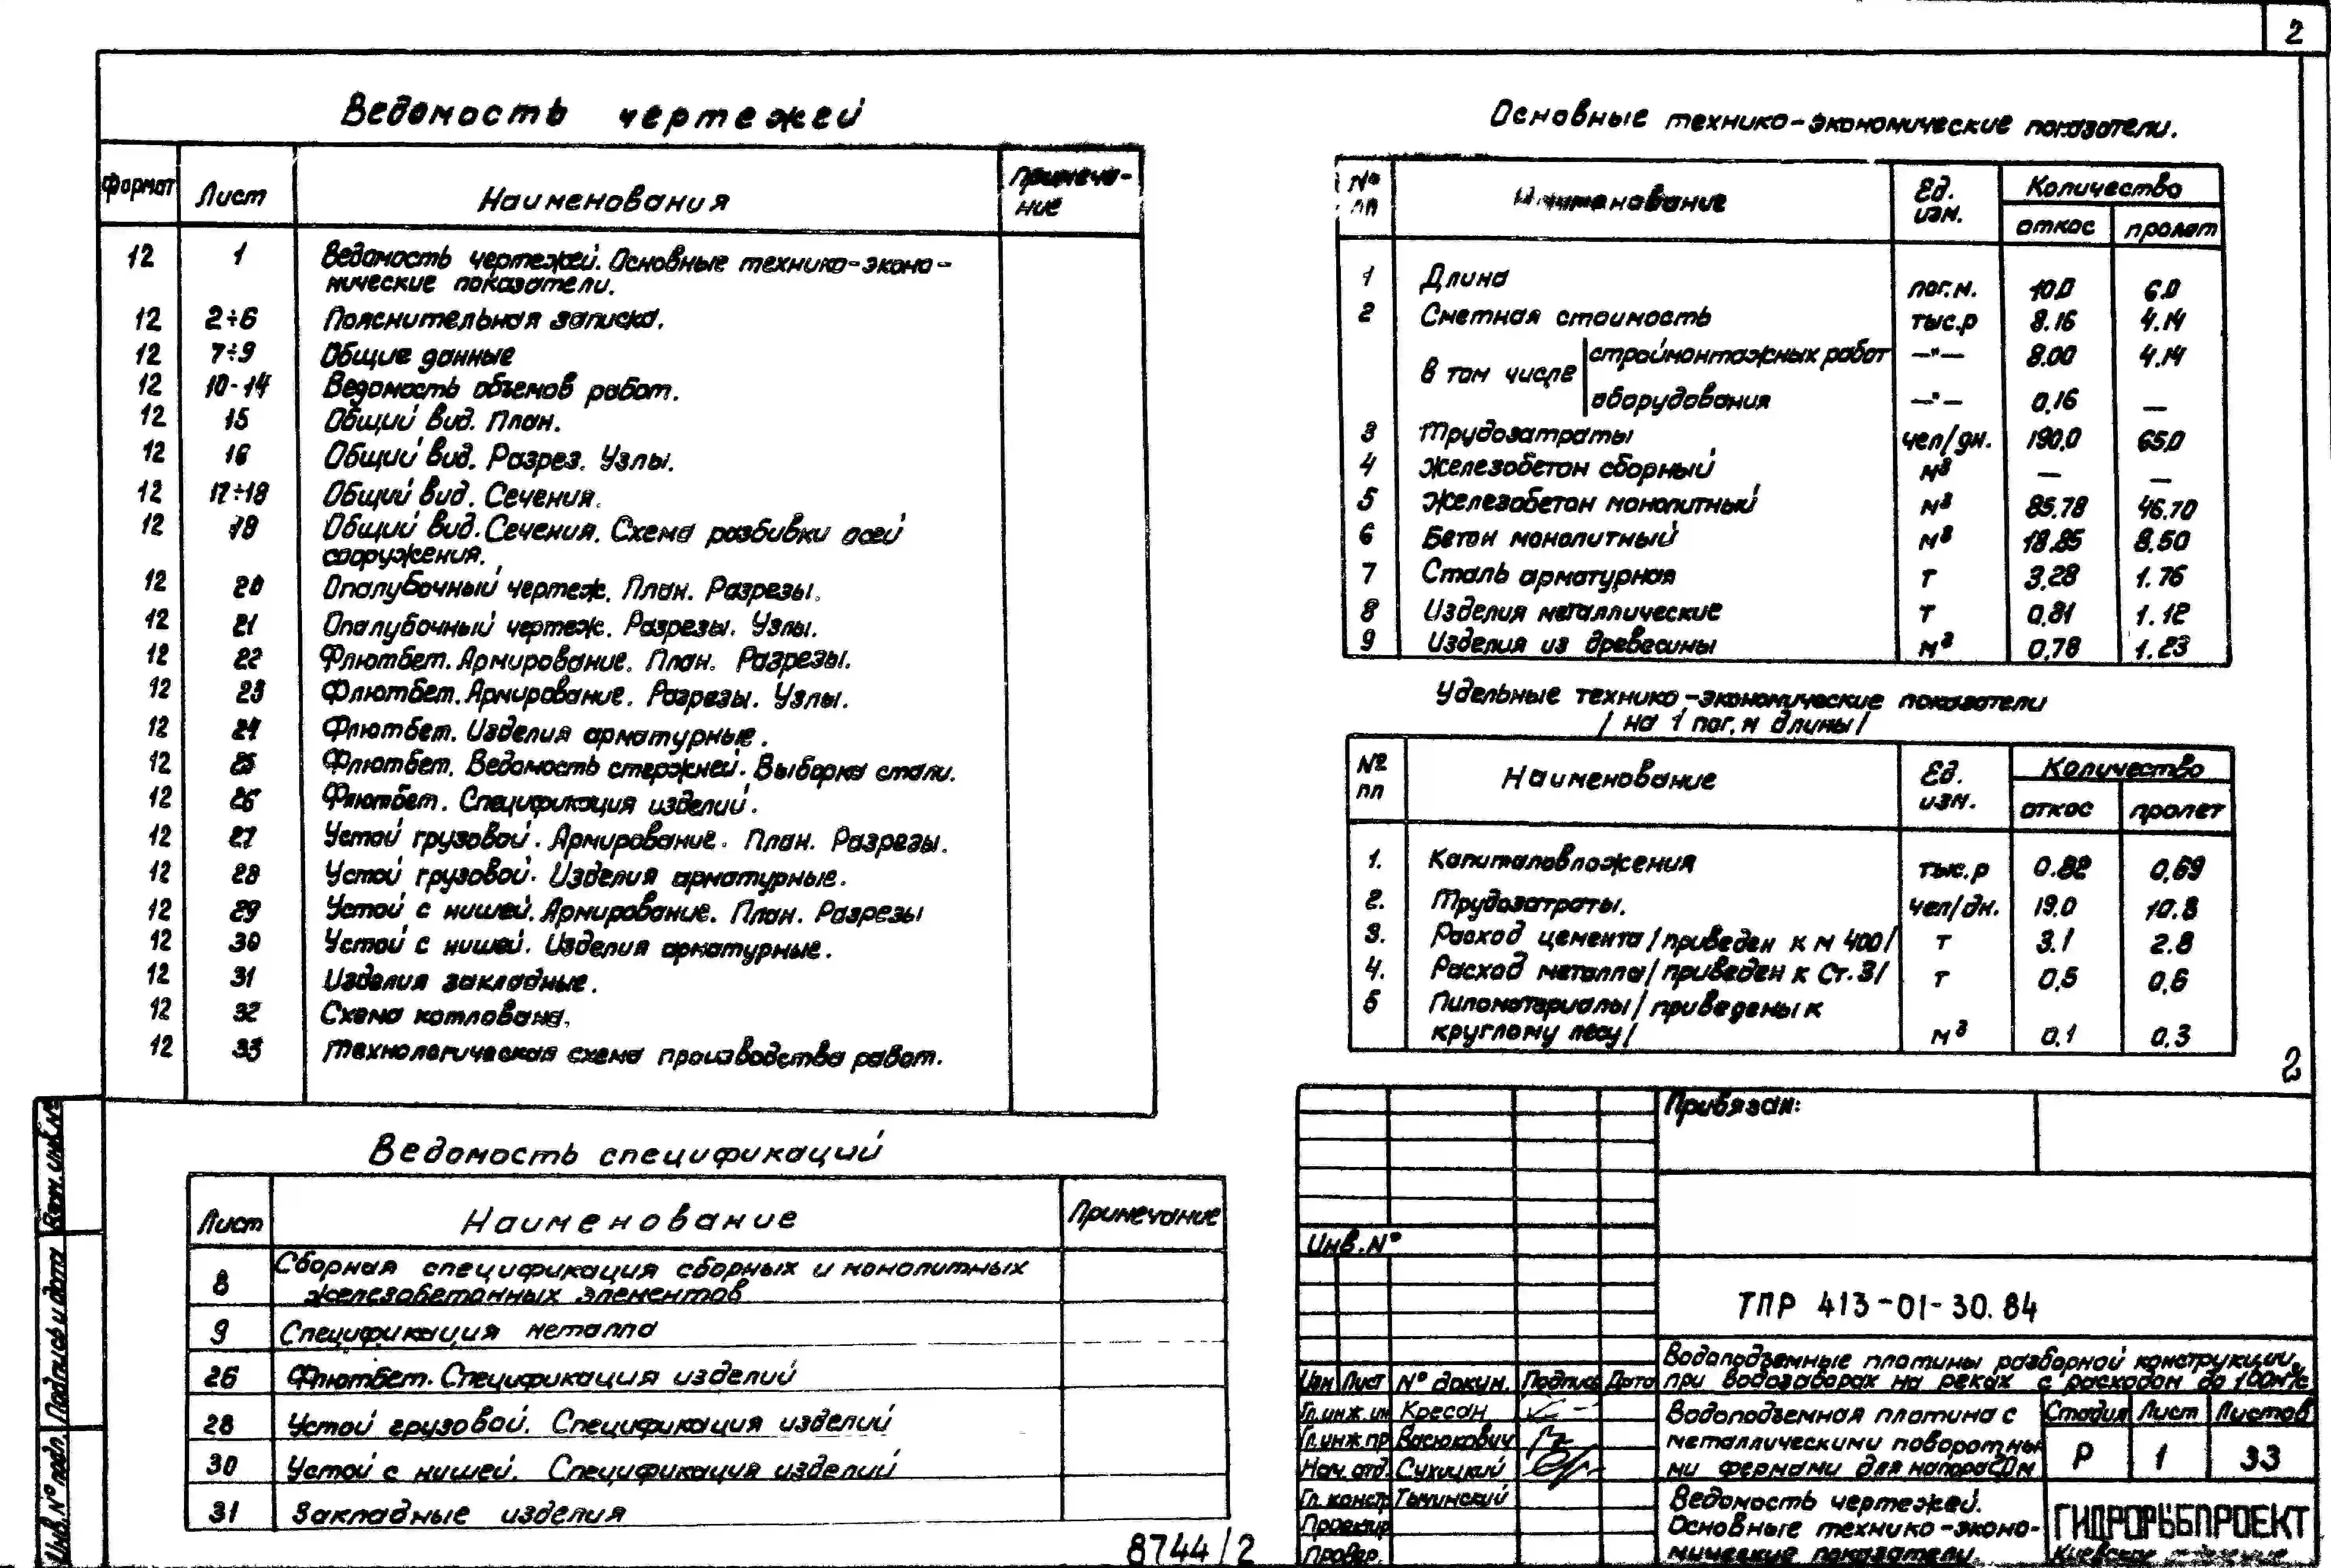 2
Ведомость чертежей
Формат Лист Наименования Примеча-
ние
12 1 Ведомость чертежей. Основные технико-эконо-
мические показатели.
12 2÷6 Пояснительная записка.
12 7÷9 Общие данные
12 10-14 Ведомость объемов работ.
12 15 Общий вид. План.
12 16 Общий вид. Разрез. Узлы.
12 17÷18 Общий вид. Сечения.
12 Общий вид. Сечения. Схема разбивки осей
сооружения.
12 20 Опалубочный чертеж. План. Разрезы.
12 21 Опалубочный чертеж. Разрезы. Узлы.
12 22 Флютбет. Армирование. План. Разрезы.
12 23 Флютбет. Армирование. Разрезы. Узлы.
12 24 Флютбет. Изделия арматурные.
12 25 Флютбет. Ведомость стержней. Выборка стали.
12 26 Флютбет. Спецификация изделий.
12 27 Устой грузовой. Армирование. План. Разрезы.
12 28 Устой грузовой. Изделия арматурные.
12 29 Устой с нишей. Армирование. План. Разрезы
12 30 Устой с нишей. Изделия арматурные.
12 31 Изделия закладные.
12 32 Схема котлована.
12 33 Технологическая схема производства работ.
Ведомость спецификаций
Лист Наименование Примечание
8 Сборная спецификация сборных и монолитных
железобетонных элементов
9 Спецификация металла
26 Флютбет. Спецификация изделий
28 Устой грузовой. Спецификация изделий
30 Устой с нишей. Спецификация изделий
31 Закладные изделия
8744/2
Основные технико-экономические показатели.
№ пп Наименование Ед. изм. Количество
откос пролет
1 Длина пог.м. 10.0 6.0
2 Сметная стоимость тыс.р 8.16 4.14
в том числе строймонтажных работ —"— 8.00 4.14
оборудования —"— 0,16 —
3 Трудозатраты чел/дн. 190,0 65,0
4 Железобетон сборный м3 — —
5 Железобетон монолитный м3 85.78 46.70
6 Бетон монолитный м3 18.85 8.50
7 Сталь арматурная т 3,28 1.76
8 Изделия металлические т 0,81 1.12
9 Изделия из древесины м3 0,78 1.23
Удельные технико-экономические показатели
/на 1 пог.м длины/
№ пп Наименование Ед. изм. Количество
откос пролет
1. Капиталовложения тыс.р 0.82 0,69
2. Трудозатраты. чел/дн. 19.0 10.8
3. Расход цемента /приведен к М 400/ т 3.1 2.8
4. Расход металла /приведен к Ст.3/ т 0,5 0,6
5 Пиломатериалы /приведены к
круглому лесу/ м3 0.1 0.3
2
Привязан:
Инв.№
ТПР 413-01-30.84
Водоподъемные плотины разборной конструкции
при водозаборах на реках с расходом до 100м3/с
Изм Лист № докум. Подпись Дата
Гл.инж.ин Кресан
Гл.инж.пр Васюкович
Нач.отд. Сухицкий
Гл.констр Тычинский
Проектир
Провер.
Водоподъемная плотина с
металлическими поворотны-
ми фермами для напора
Стадия Лист Листов
Р 1 33
Ведомость чертежей.
Основные технико-эконо-
мические показатели.
ГИДРОРЫБПРОЕКТ
Киевское отделение
Взам.инв№
Подпись и дата
Инв.№ подл.